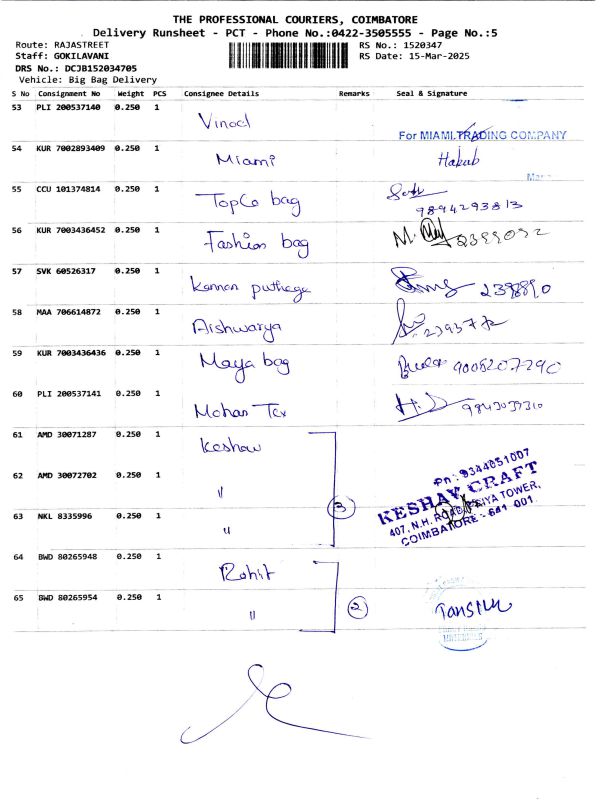 THE PROFESSIONAL COURIERS, COIMBATORE
Delivery Runsheet - PCT - Phone No.:0422-3505555 - Page No.:5
Route: RAJASTREET RS No.: 1520347
Staff: GOKILAVANI RS Date: 15-Mar-2025
DRS No.: DCJB152034705
Vehicle: Big Bag Delivery
S No Consignment No Weight PCS Consignee Details Remarks Seal & Signature
53 PLI 200537140 0.250 1 Vinod
For MIAMI TRADING COMPANY
54 KUR 7002893409 0.250 1 Miami Hakub
55 CCU 101374814 0.250 1 TopCo bag 9894293813
56 KUR 7003436452 0.250 1 Fashion bag M. 2399092
57 SVK 60526317 0.250 1 Kannan puthaga 2398890
58 MAA 706614872 0.250 1 Aishwarya
59 KUR 7003436436 0.250 1 Maya bag 9006207290
60 PLI 200537141 0.250 1 Mohan Tex
61 AMD 30071287 0.250 1 Keshav
62 AMD 30072702 0.250 1 "
63 NKL 8335996 0.250 1 " 3
Ph: 9344051007
KESHAV CRAFT
407, N.H. ROAD, TOWER,
COIMBATORE - 641 001.
64 BWD 80265948 0.250 1 Rohit
65 BWD 80265954 0.250 1 " 2
MATERIALS